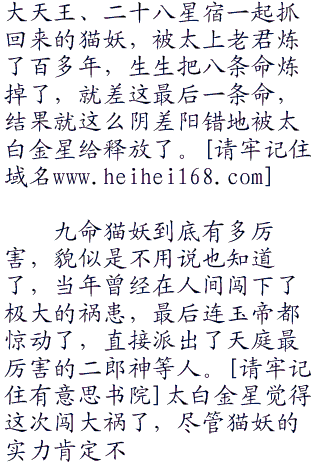 大天王、二十八星宿一起抓
回来的猫妖，被太上老君炼
了百多年，生生把八条命炼
掉了，就差这最后一条命，
结果就这么阴差阳错地被太
白金星给释放了。[请牢记住
域名www.heihei168.com]
九命猫妖到底有多厉
害，貌似是不用说也知道
了，当年曾经在人间闯下了
极大的祸患，最后连玉帝都
惊动了，直接派出了天庭最
厉害的二郎神等人。[请牢记
住有意思书院]太白金星觉得
这次闯大祸了，尽管猫妖的
实力肯定不